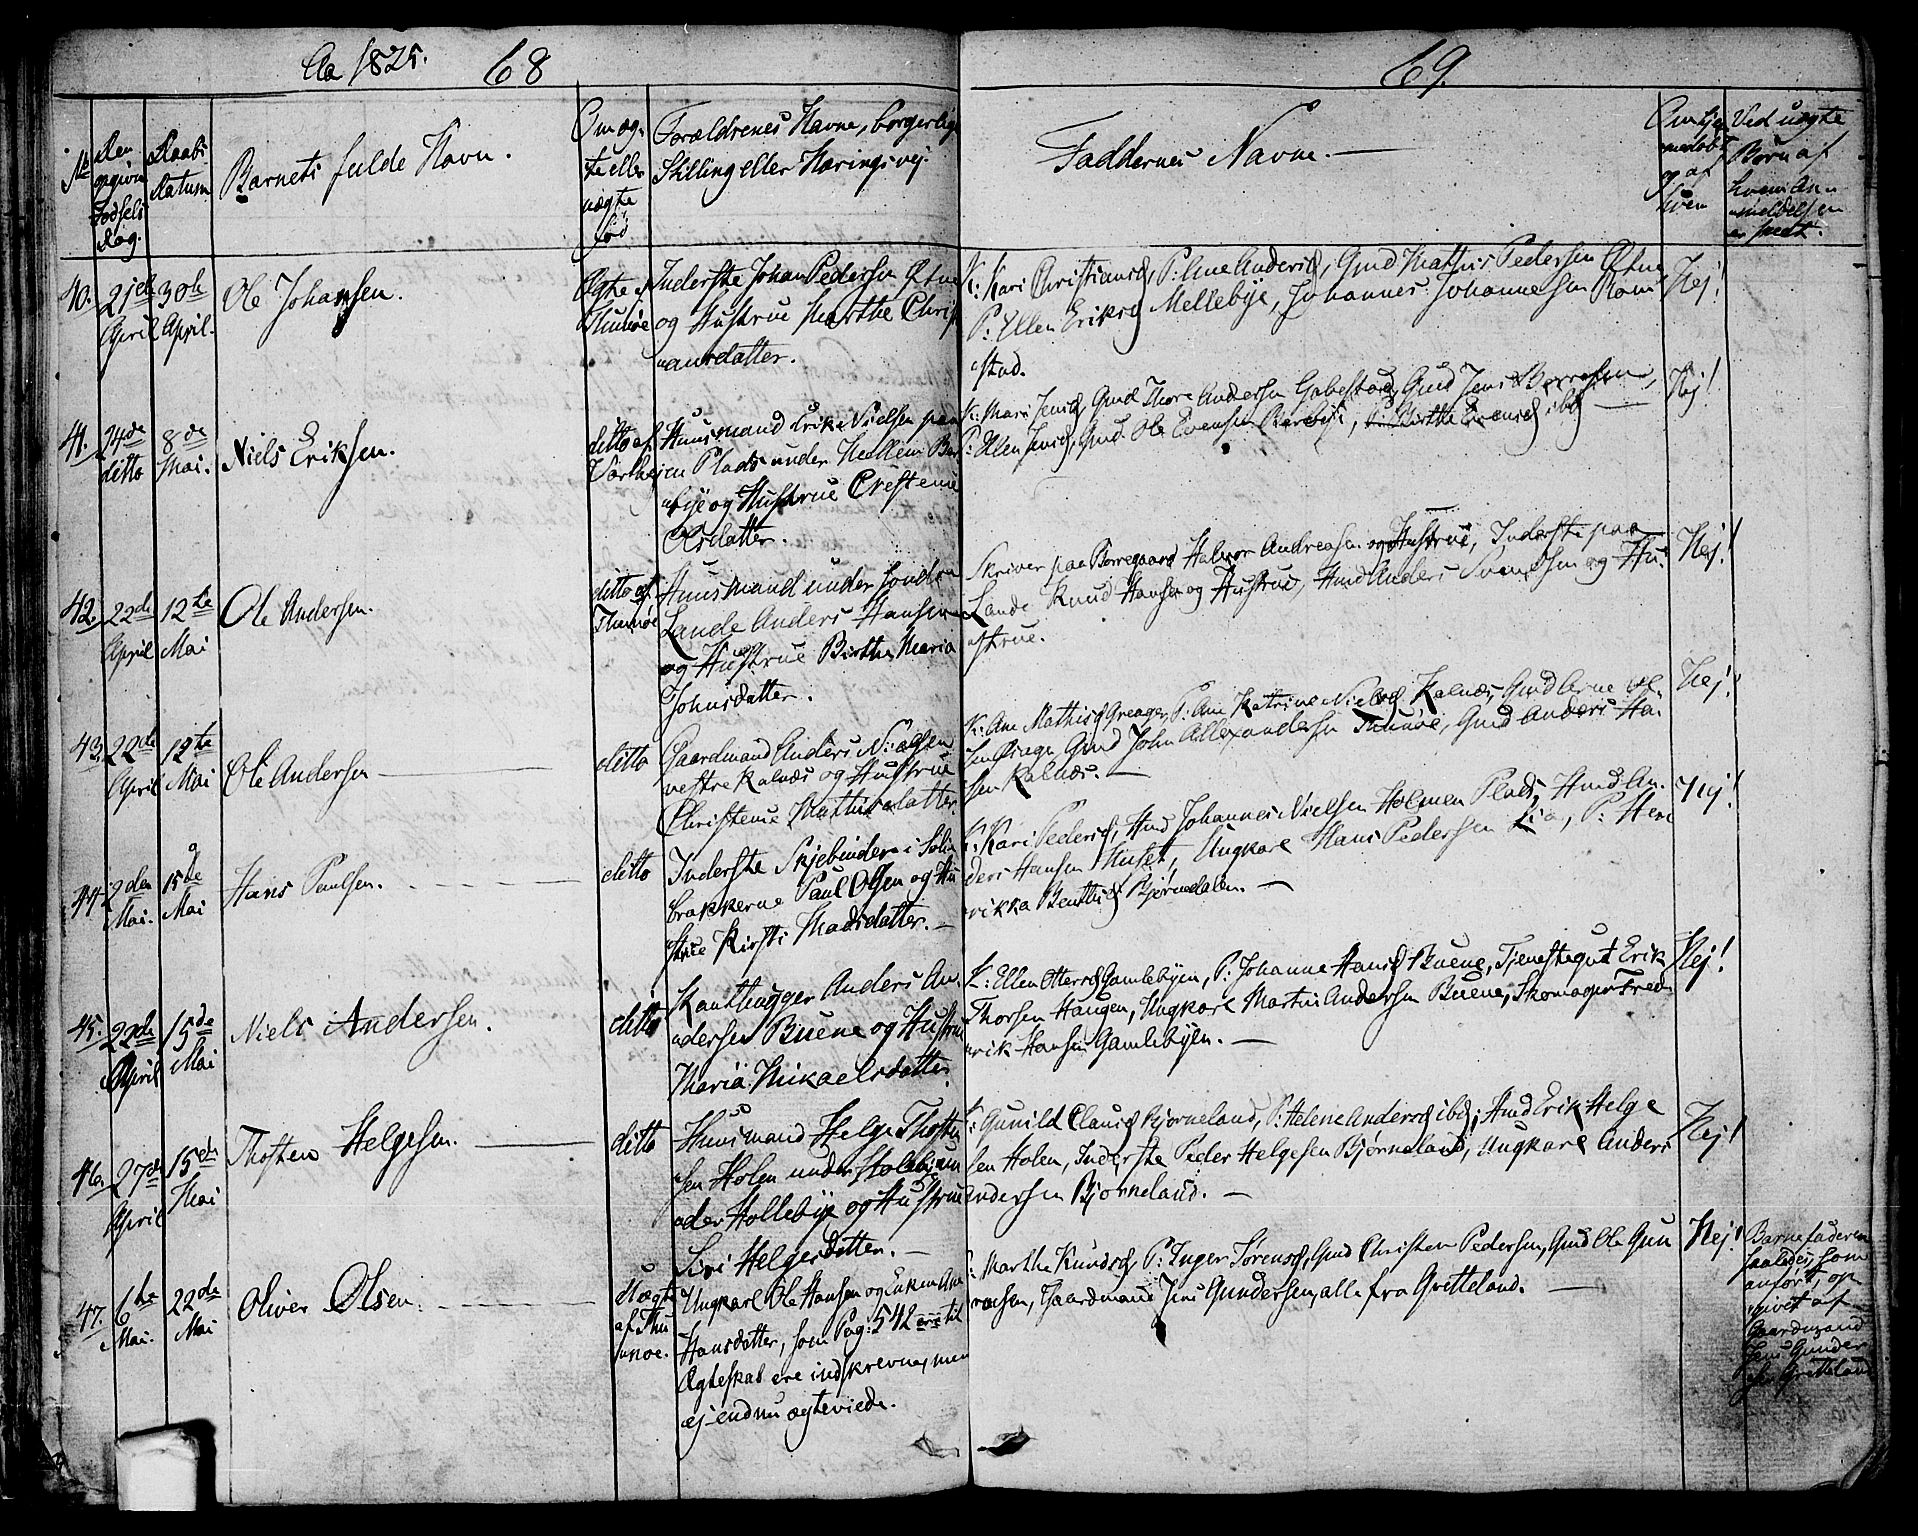 Ao 1825. 68
No Den opgivne Fødsels Dag.
Daabs Datum
Barnets fulde Navn.
Om ægte eller uægte fød
Forældrenes Navne, borgerlige
Stilling eller Næringsvej.
40. 21de April
30te April.
Ole Johansen.
Ægte
Inderste Johan Pedersen
og Hustrue Marthe Christi
ansdatter.
41. 24de ditto
8de Mai.
Niels Eriksen.
ditto af
Huusmand Erik Nielsen paa
Plads under
bye og Hustrue
Olsdatter.
42. 22de April
12te Mai
Ole Andersen.
ditto af Thunøe
Huusmand under Søndre
Lande Anders Hansen
og Hustrue Birthe Maria
Johnsdatter.
43. 22de April
12te Mai
Ole Andersen
ditto
Gaardmand Anders Nielsen
vestre Kalnæs og Hustrue
Christene
44. 2den Mai.
15de Mai
Hans Paulsen.
ditto
Inderste Skjebinder i
brakkerne Paul Olsen og Hu
strue Kirsti Madsdatter.
45. 22de April
15de Mai
Niels Andersen.
ditto
Kanthugger Anders An
dersen Buene og Hustrue
Maria Mikaelsdatter
46. 27de April
15de Mai
Thosten Helgesen.
ditto
Huusmand Helge Thosten
sen Holen under
Hollebye og Hustrue
Siri Helgesdatter.
47. 6te Mai.
22de Mai
Oliver Olsen.
Uægte af Thunøe.
Ungkarl Ole Hansen og Enken Ane
Hansdatter, som Pag: 542 ere til
Ægteskab ere indskrevne, men
ej endnu ægteviede.
69.
Faddernes Navne.
og af hven
Ved uægte
Børn af
hvem An-
meldelsen
er skedt.
K: Kari Christiansd, P: Ane Andersd, Gmd Mathis Pedersen
P: Ellen Eriksd Mellebye, Johannes Johannesen Rom
stad.
Nej!
K: Mari Jensd, Gmd Thore Andersen Gabestad, Gmd Jens
P: Ellen Jensd, Gmd. Ole Evensen P: Birthe Evensd ibd
Nej!
Skriver paa Borregaard Halvor Andreasen og Hustrue, Inderste paa
Lande Knud Hansen og Hustrue, Hmd Anders Svendsen og Hu
strue.
Nej!
K: Ane Mathisd Greager, P: Ane Katrine Nielsd Kalnæs, Gmd Arne Ol-
sen Gmd John Allexandersen Tunøe, Gmd Anders Ha
sen Kalnæs.
Nej!
K: Kari Pedersd, Hmd Johannes Nielsen Holmen Plads, Hmd An
ders Hansen Huset, Ungkarl Hans Pedersen Lia, P: Hen
rikka Bentsd Bjørnedalen.
Nej!
K: Ellen Ottersd Gamlebyen, P: Johanne Hansd Buene, Tjenestegut Erik
Thorsen Haugen, Ungkarl Martin Andersen Buene, Skomager Fred
rik Hansen Gamlebyen.
Nej!
K: Gunild Clausd Bjørneland, P: Helene Andersd ibd; Hmd Erik Helge
sen Holen, Inderste Peder Helgesen Bjørneland, Ungkarl Anders
Andersen Bjørneland.
Nej!
K: Marthe Knudsd, P: Inger Sørensd, Gmd Christen Pedersen, Gmd Ole Gun
Gaardmand Jens Gundersen, alle fra Gretteland.
Nej!
Barnefaderen
saaledes, som
anført, op
givet af
Gaardmand
Jens Gunder
sen Gretteland